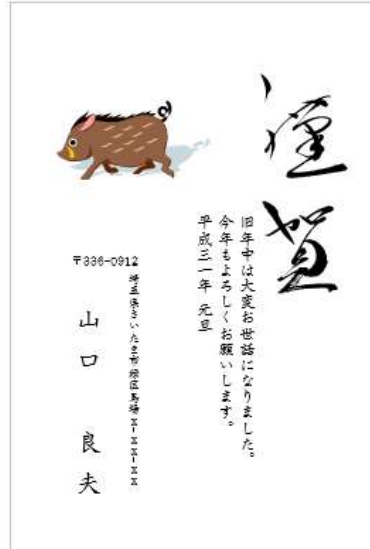 謹賀
旧年中は大変お世話になりました。
今年もよろしくお願いします。
平成三一年 元旦
〒336-0912
埼玉県さいたま市緑区馬場X-XX-XX
山口 良夫